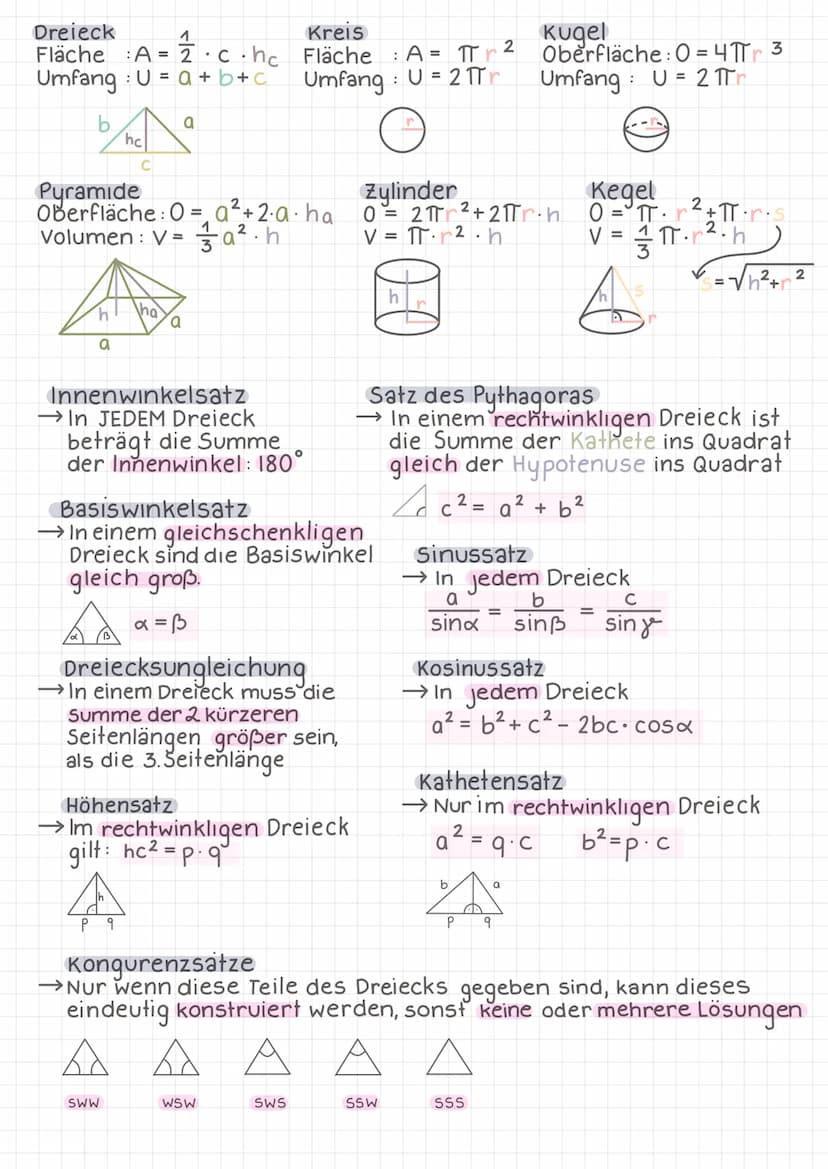 Dreieck
Fläche : A = 1/2 · c · hc
Umfang : U = a + b + c
b
a
hc
c
Kreis
Fläche : A = πr²
Umfang : U = 2πr
r
Kugel
Oberfläche : O = 4πr³
Umfang : U = 2πr
r
Pyramide
Oberfläche : O = a² + 2·a·ha
Volumen : V = 1/3 a² · h
h
ha
a
a
Zylinder
O = 2πr² + 2πr·h
V = π·r²·h
h
r
Kegel
O = π·r² + π·r·s
V = 1/3 π·r²·h
s = √h²+r²
h
s
r
Innenwinkelsatz
→ In JEDEM Dreieck
beträgt die Summe
der Innenwinkel : 180°
Satz des Pythagoras
→ In einem rechtwinkligen Dreieck ist
die Summe der Kathete ins Quadrat
gleich der Hypotenuse ins Quadrat
c² = a² + b²
Basiswinkelsatz
→ In einem gleichschenkligen
Dreieck sind die Basiswinkel
gleich groß.
α β
α = β
Sinussatz
→ In jedem Dreieck
a/sinα = b/sinβ = c/sinγ
Dreiecksungleichung
→ In einem Dreieck muss die
Summe der 2 kürzeren
Seitenlängen größer sein,
als die 3. Seitenlänge
Kosinussatz
→ In jedem Dreieck
a² = b² + c² - 2bc · cosα
Höhensatz
→ Im rechtwinkligen Dreieck
gilt : hc² = p · q
h
p q
Kathetensatz
→ Nur im rechtwinkligen Dreieck
a² = q·c b² = p·c
b a
p q
Kongurenzsätze
→ Nur wenn diese Teile des Dreiecks gegeben sind, kann dieses
eindeutig konstruiert werden, sonst keine oder mehrere Lösungen
SWW WSW SWS SSW SSS